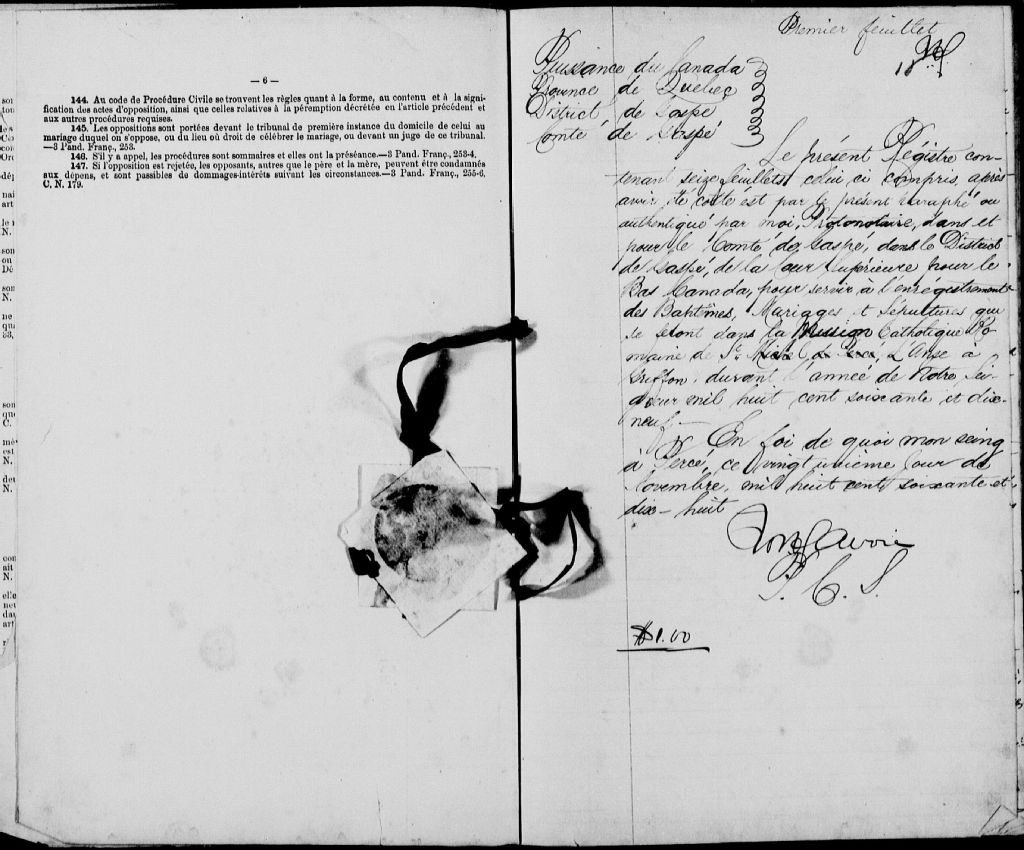 — 6 —
144. Au code de Procédure Civile se trouvent les règles quant à la forme, au contenu et à la signi-
fication des actes d'opposition, ainsi que celles relatives à la péremption décrétée en l'article précédent et
aux autres procédures requises.
145. Les oppositions sont portées devant le tribunal de première instance du domicile de celui au
mariage duquel on s'oppose, ou du lieu où droit de célébrer le mariage, ou devant un juge de ce tribunal.
—3 Pand. Franç., 253.
146. S'il y a appel, les procédures sont sommaires et elles ont la préséance.—3 Pand. Franç., 253-4.
147. Si l'opposition est rejetée, les opposants, autres que le père et la mère, peuvent être condamnés
aux dépens, et sont passibles de dommages-intérêts suivant les circonstances.—3 Pand. Franç., 255-6.
C. N. 179.
Premier feuillet
Puissance du Canada
Province de Québec
District de Gaspé
Comté de Gaspé
Le présent Régistre con-
tenant seize feuillets celui ci compris, après
avoir été coté est par le présent paraphé ou
authentiqué par moi, Protonotaire, dans et
pour le Comté de Gaspé, dans le District
de Gaspé, de la Cour Supérieure pour le
Bas Canada, pour servir à l'enrégistrement
des Baptêmes, Mariages et Sépultures qui
se feront dans la Mission Catholique Ro
maine de St. Michel de Percé, L'Anse à
Griffon, durant l'année de Notre Sei-
gneur mil huit cent soixante et dix-
neuf.—
En foi de quoi mon seing
à Percé, ce vingt unième jour de
Novembre, mil huit cent soixante et
dix-huit
P. C. S.
$1.00